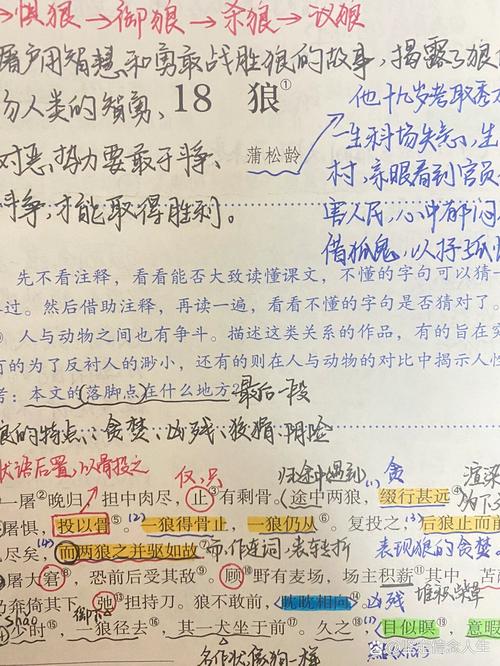 →惧狼→御狼→杀狼→议狼
屠户用智慧和勇敢战胜狼的故事，揭露了狼
人类的智勇，
18 狼①
他十九岁考取秀
一生科场失意，生
对恶势力要敢于争、
蒲松龄
村，亲眼看到官员
斗争，才能取得胜利。
害人民，心中郁闷
借狐鬼，以抒孤
先不看注释，看看能否大致读懂课文，不懂的字句可以猜一
过。然后借助注释，再读一遍，看看不懂的字句是否猜对了。
人与动物之间也有争斗。描述这类关系的作品，有的旨在
有的为了反衬人的渺小，还有的则在人与动物的对比中揭示人性
考：本文的落脚点在什么地方？最后一段
狼的特点：贪婪、凶残、狡猾、阴险
状语后置，以骨投之
仅，只
归途中遇到
(1)贪
渲染
一屠②晚归，担中肉尽，止③有剩骨。途中两狼，缀行甚远④
为下
屠惧，投以骨⑤。(2)一狼得骨止，一狼仍从⑥。复投之，(3)后狼止而前
尽矣，(4)而两狼之并驱如故⑦
而，作连词，表转折
表现狼的贪婪。
屠大窘⑧，恐前后受其敌⑨。顾⑩野有麦场，场主积薪⑪其中，苫
堆积柴草
奔倚其下，弛⑬担持刀。狼不敢前，眈眈相向⑭
凶残
shǎo
卸下
少时⑮，一狼径去⑯，其一犬坐于前⑰。久之⑱，(1)目似瞑⑲，意暇
名作状，像狗一样